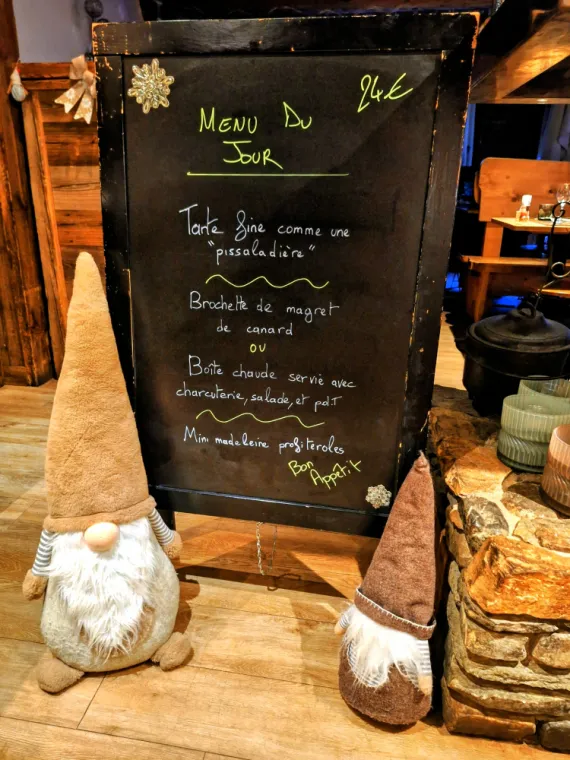 24€
Menu Du
Jour
Tarte fine comme une
"pissaladière"
Brochette de magret
de canard
ou
Boîte chaude servie avec
charcuterie, salade, et pdT
Mini madeleire profiteroles
Bon
Appétit